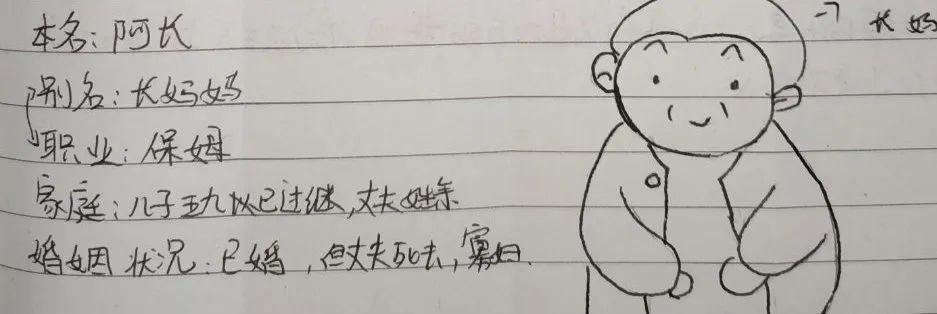 本名：阿长
别名：长妈妈
职业：保姆
家庭：儿子五九以已过继，丈夫姓余
婚姻状况：已婚，但丈夫死去，寡妇.
→ 长妈